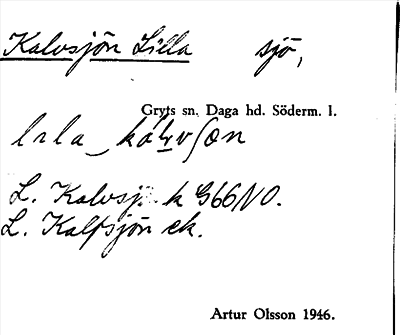 Kalvsjön Lilla sjö,
Gryts sn. Daga hd. Söderm. l.
L. Kalvsj. k G66NO.
L. Kalfsjön ek.
Artur Olsson 1946.